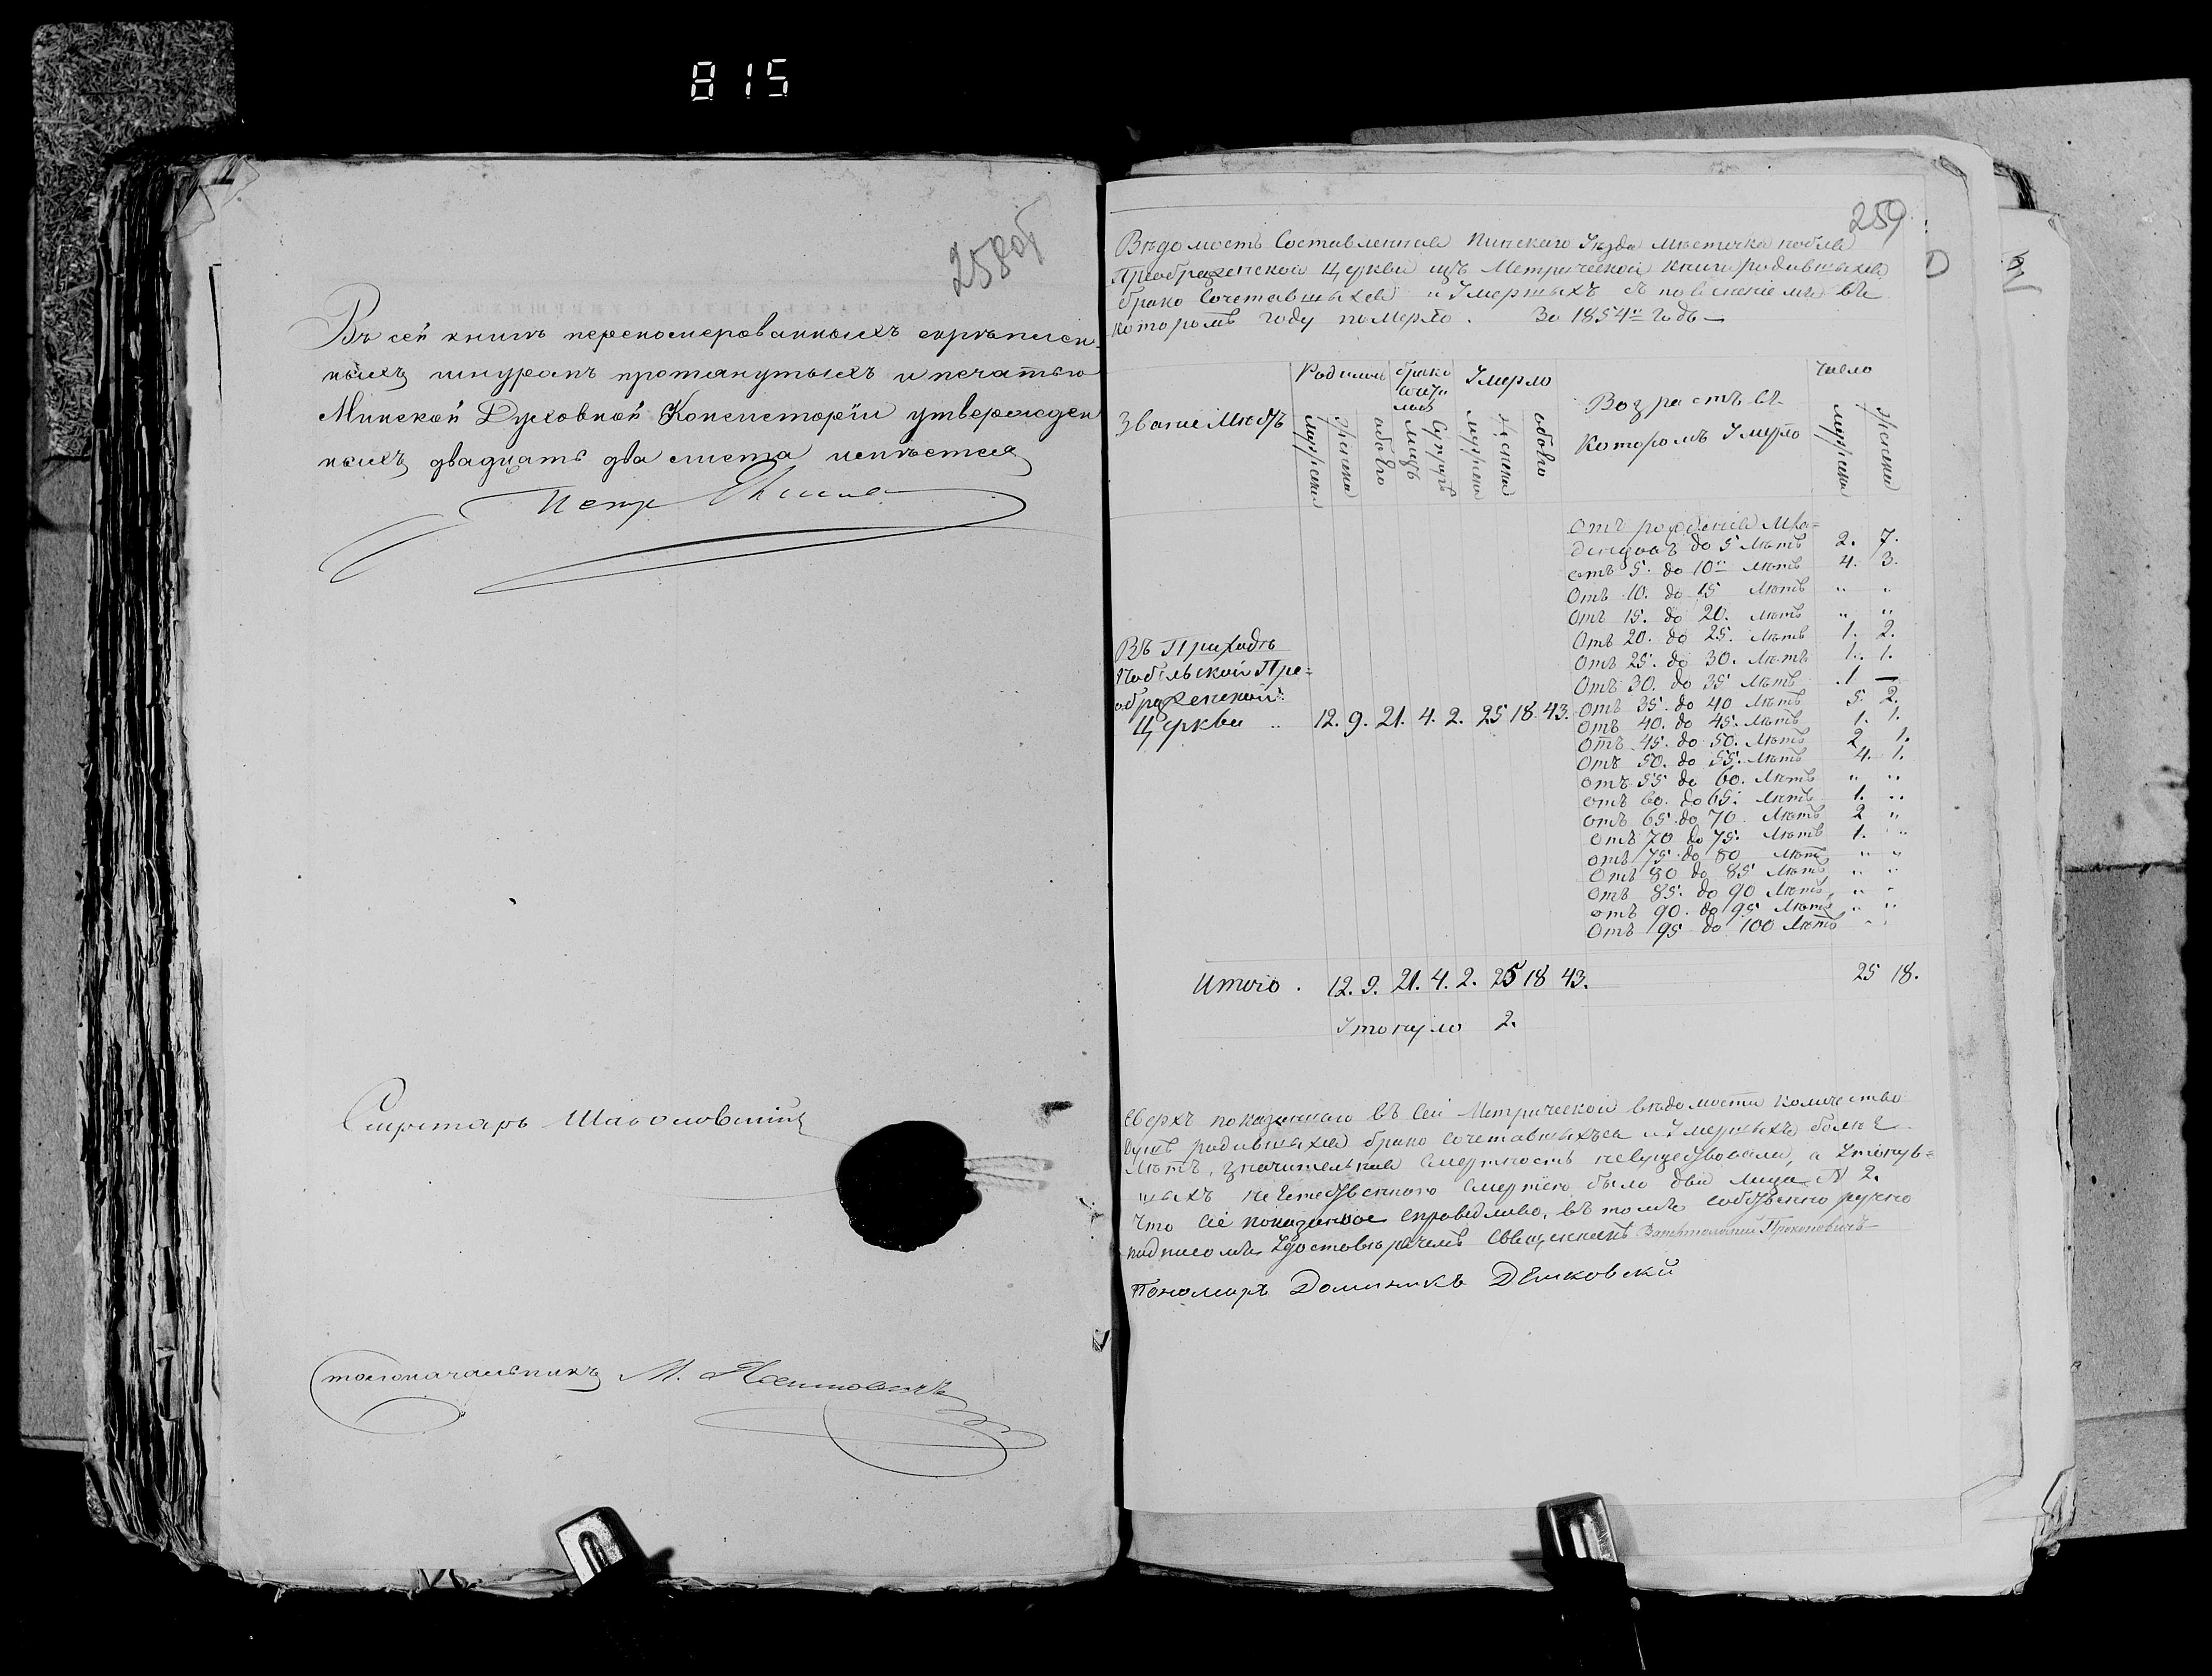 815
258об
Въ сей книгѣ перенумерованныхъ скрѣплен-
ныхъ шнуромъ протянутыхъ и печатью
Минской Духовной Консисторіи утвержден
ныхъ двадцать два листа имѣется
Петр
Секретарь
Столоначальникъ М.
259
Вѣдомость Составленная Пинскаго Уѣзда мѣстечка
Преображенской Церкви изъ Метрической книги родившихся
брако Сочетавшихся и Умершихъ въ
которомъ году померло. За 1854й годъ —
Звание Мѣстъ
Родилось
брако
Умерло
Возрастъ въ
Которомъ Умерло
Число
мужеска
женска
обоего
лицъ
Супругъ
мужеска
женска
обоего
мужеска
женска
Отъ рождения Мла=
денцовъ до 5 лѣтъ 2. 7.
отъ 5. до 10ти лѣтъ 4. 3.
Отъ 10. до 15 лѣтъ " "
Отъ 15. до 20. лѣтъ " "
Отъ 20. до 25. лѣтъ 1. 2.
Отъ 25. до 30. лѣтъ 1. 1.
Отъ 30. до 35 лѣтъ 1 —
Отъ 35. до 40 лѣтъ 5. 2.
Отъ 40. до 45. лѣтъ 1. 1.
Отъ 45. до 50. лѣтъ 2 1.
Отъ 50. до 55. лѣтъ 4. 1.
отъ 55 до 60. лѣтъ " "
отъ 60. до 65. лѣтъ 1. "
отъ 65 до 70 лѣтъ 2 "
Отъ 70 до 75. лѣтъ 1. "
отъ 75 до 80 лѣтъ " "
Отъ 80 до 85 лѣтъ " "
Отъ 85. до 90 лѣтъ " "
отъ 90. до 95 лѣтъ " "
Отъ 95 до 100 лѣтъ " "
Въ Приходѣ
Нобельской Пре=
ображенской
Церкви " 12. 9. 21. 4. 2. 25 18 43.
Итого . 12. 9. 21. 4. 2. 25 18 43. 25 18.
Утонуло 2.
Сверхъ показаннаго въ Сей Метрической вѣдомости количество
Душъ родившихся брако сочетавшихся и Умершихъ болѣе
лѣтъ, значительная Смертность несуществовала, а Утонув=
шихъ неестественною Смертію было два лица № 2.
Что Сіе показанное справедливо, въ томъ собственно ручно
подписомъ Удостовѣряемъ Священникъ Прокоповичъ
Пономарь Доминикъ Дешковскій